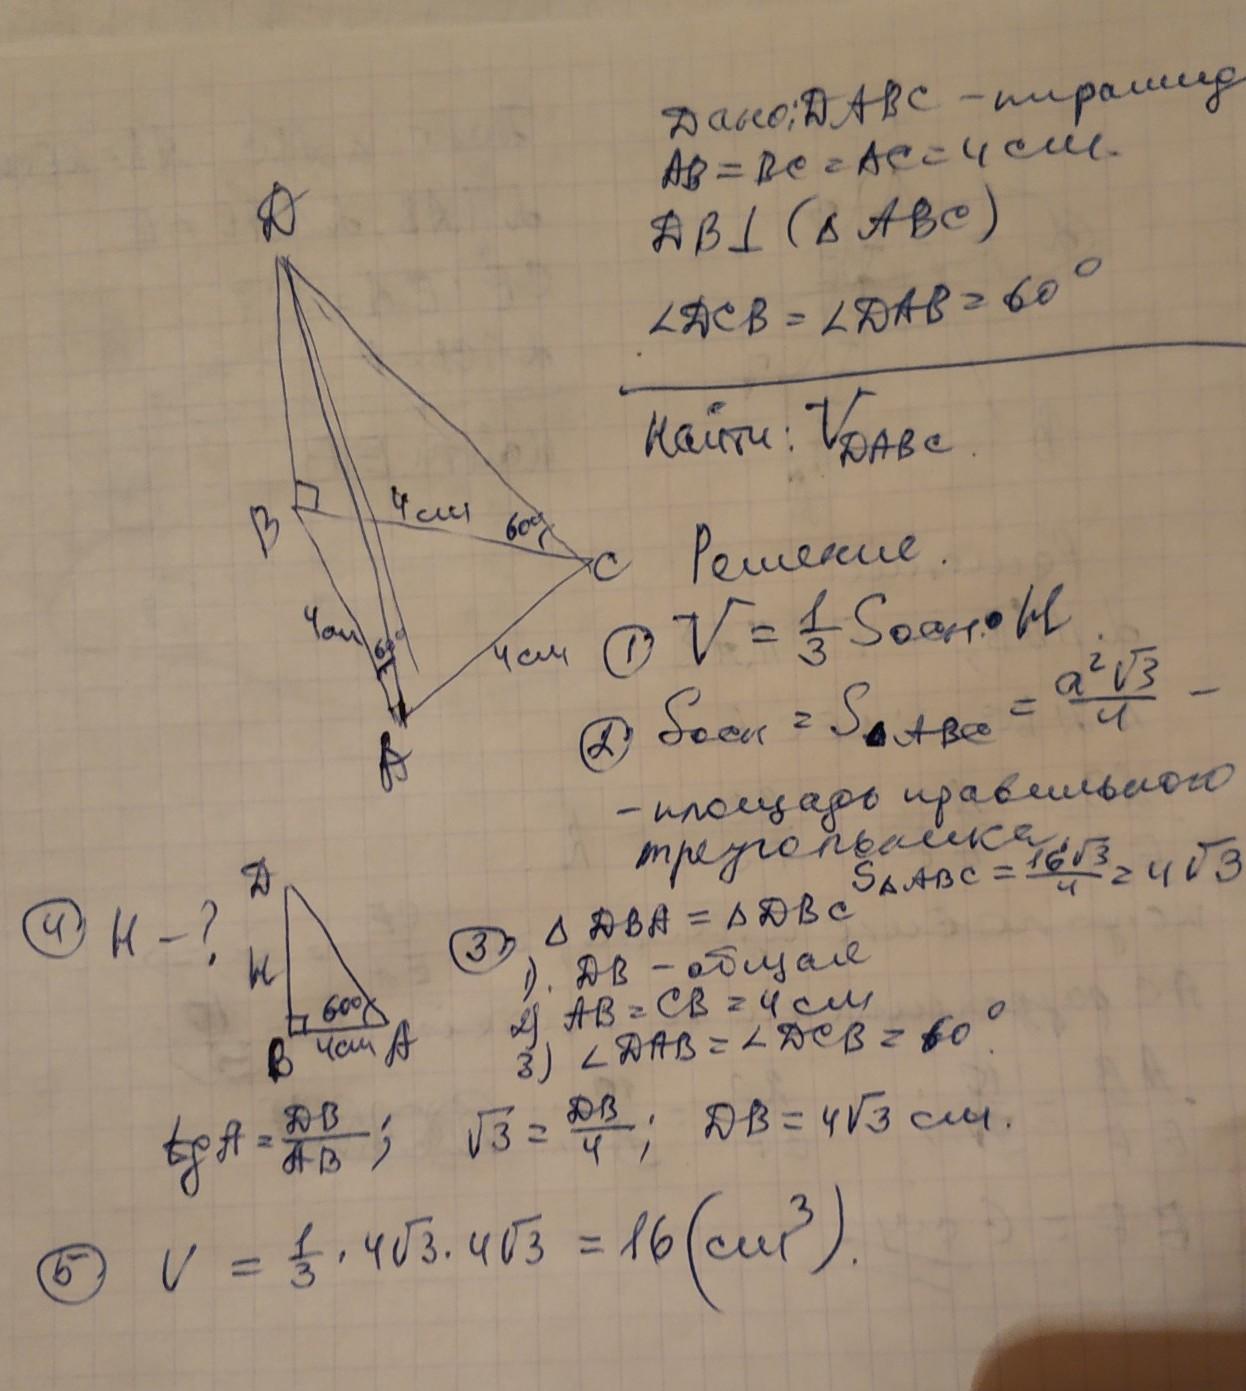 Дано: DABC – пирамид
AB = BC = AC = 4 см.
DB⊥ (△ ABC)
∠DCB = ∠DAB = 60°
Найти: V_DABC.
D
B
4 см
60°
C
4 см
60°
4 см
A
Решение.
① V = 1/3 Sосн. · H.
② Sосн = S△ABC = a²√3/4 –
– площадь правильного
треугольника.
S△ABC = 16√3/4 = 4√3
③ △ DBA = △DBC
1). DB – общая
2) AB = CB = 4 см
3) ∠DAB = ∠DCB = 60°.
④ H – ?
D
H
60°
B 4см A
tg A = DB/AB; √3 = DB/4; DB = 4√3 см.
⑤ V = 1/3 · 4√3 · 4√3 = 16 (см³).